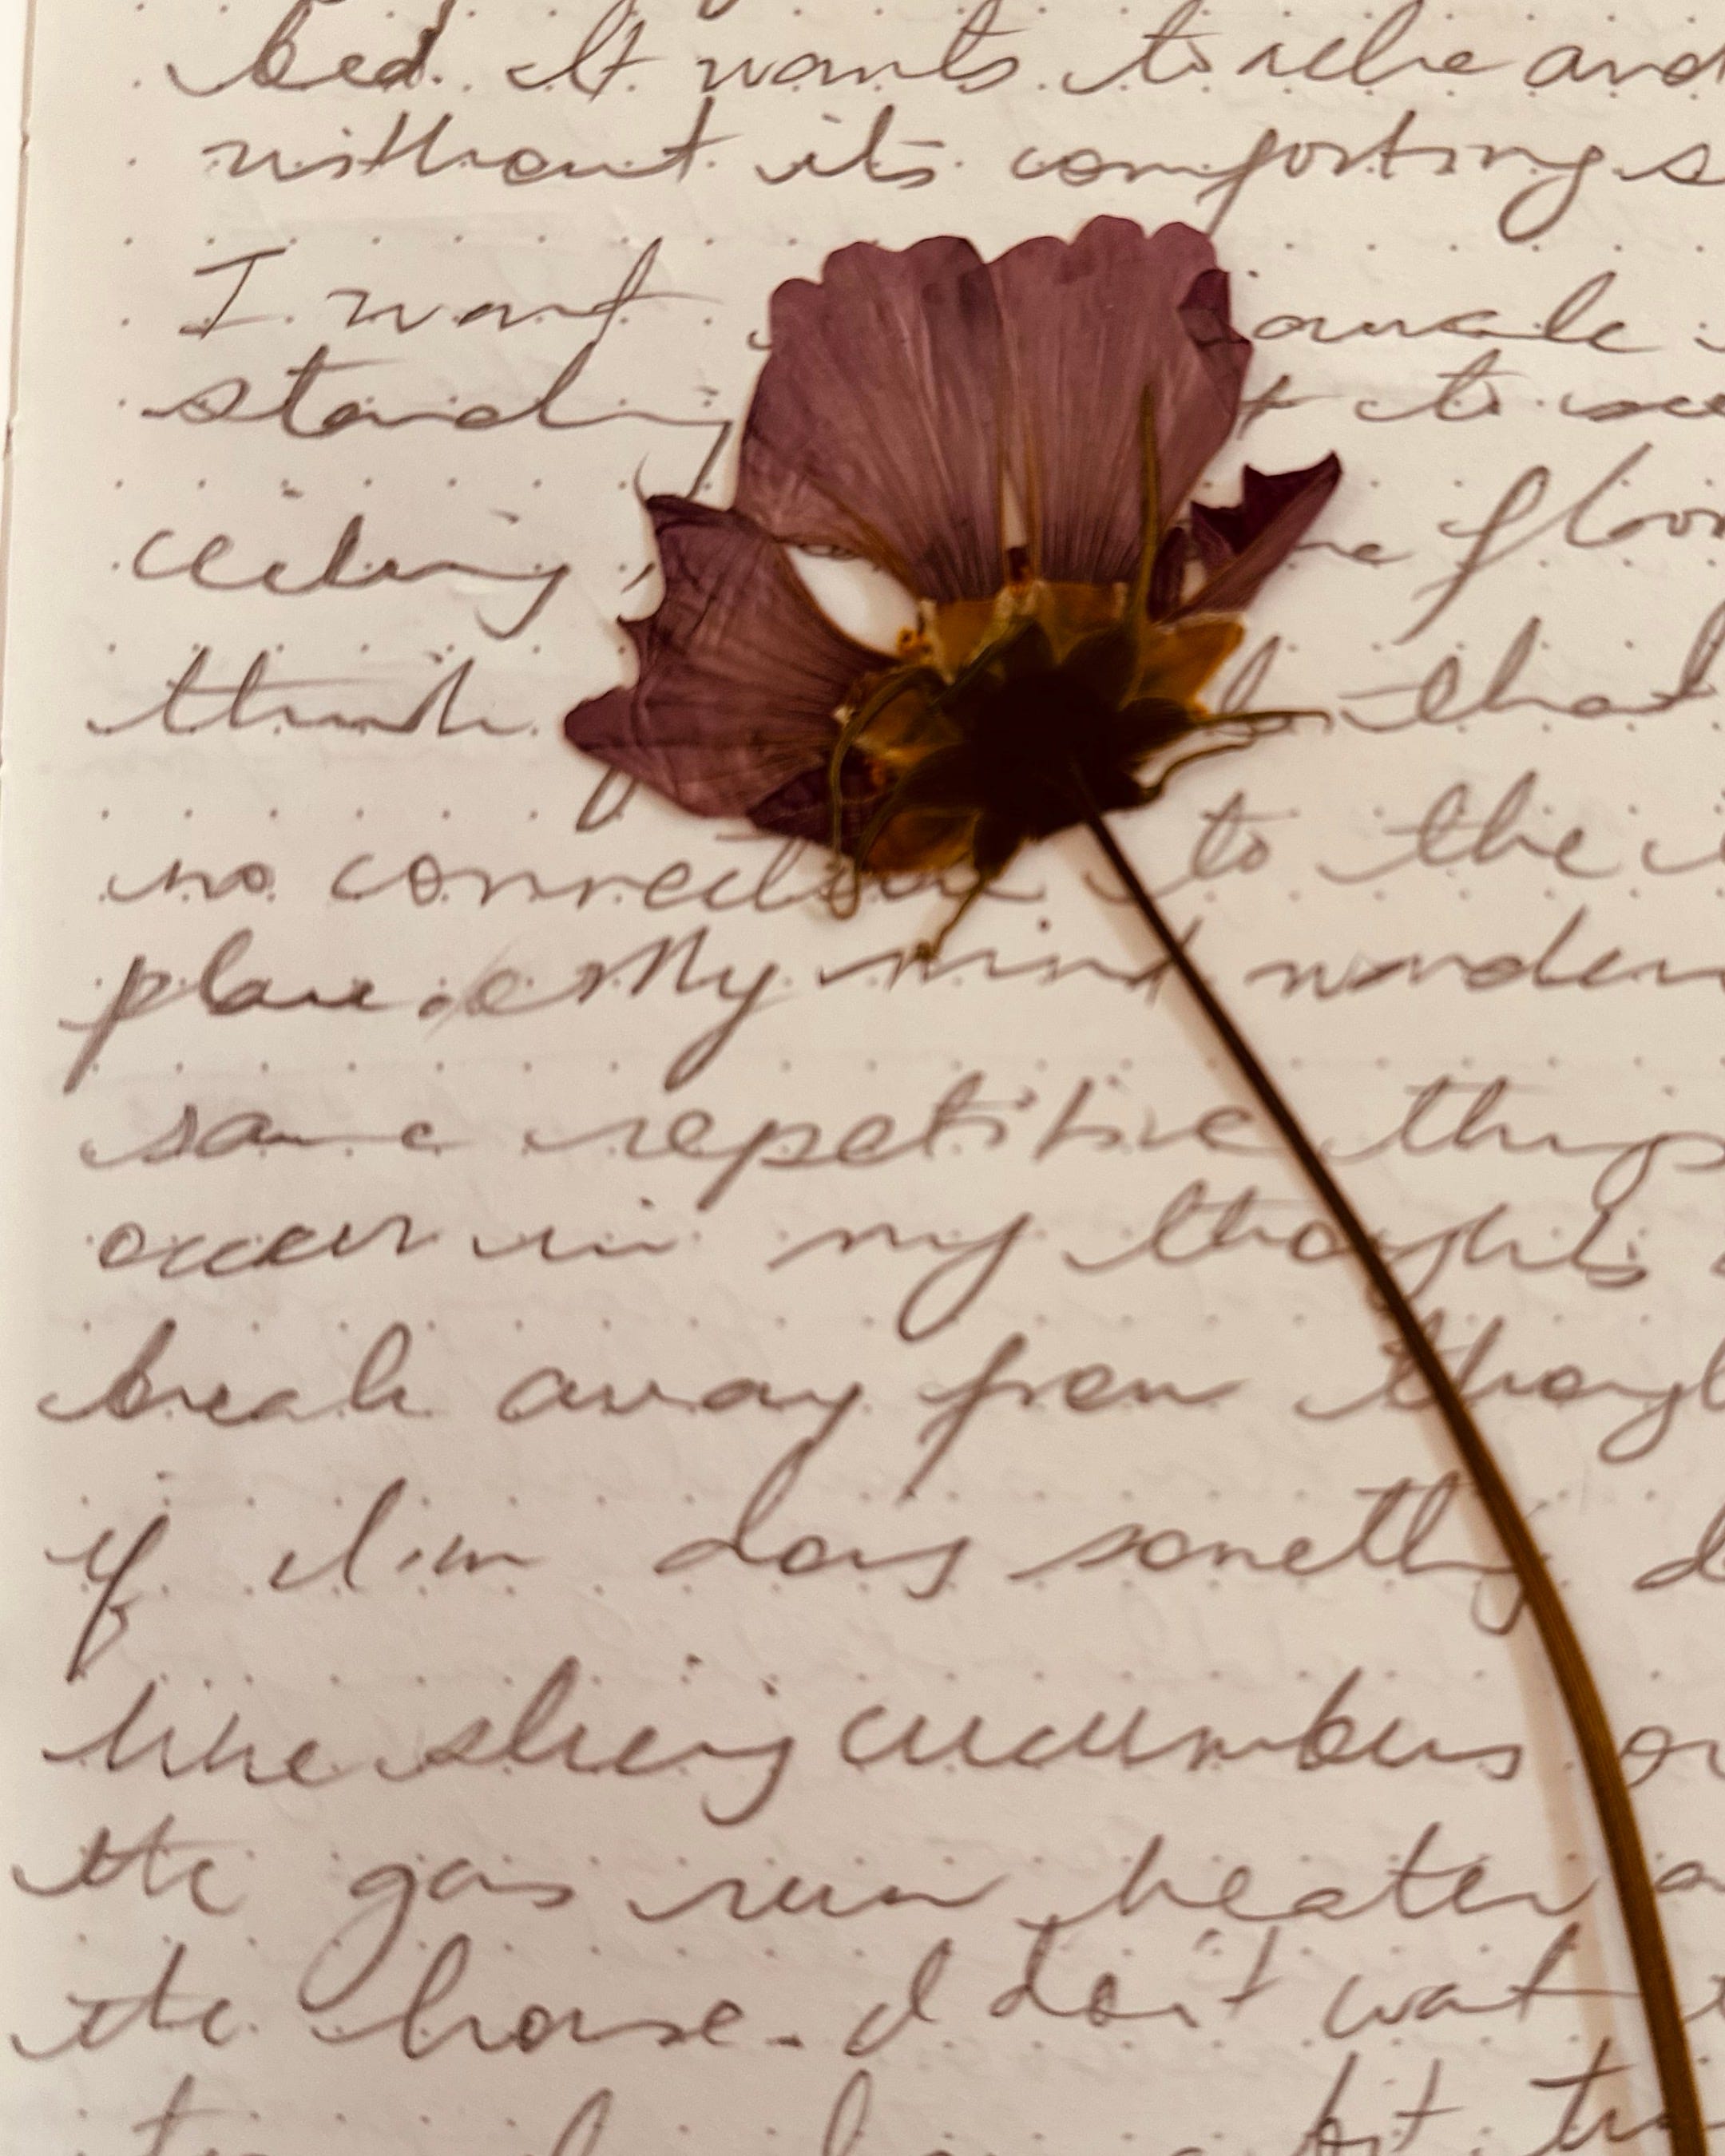 bed. It wants to ache and
without its comforting s
I want
standing to see
ceiling, floor
think that
no connection to the i
place. My mind wanders
same repetitive things
occur in my thoughts
break away from though
if I'm doing something d
like slicing cucumbers or
the gas run heater a
the house. I don't want t